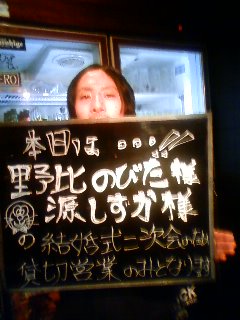 本日は
野比のびた様
源しずか様
の結婚式二次会のため
貸切営業のみとなります